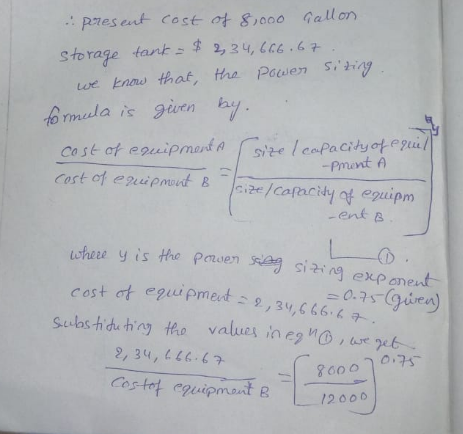 ∴ present cost of 8,000 Gallon
storage tank = $ 2,34,666.67.
we know that, the power sizing
formula is given by.
cost of equipment A / cost of equipment B = [ size / capacity of equi/-pment A / size/capacity of equipm-ent B. ]^y
①
where y is the power sizing exponent
= 0.75 (given)
cost of equipment = 2,34,666.67.
Substituting the values in eqⁿ ①, we get
2,34,666.67 / Cost of equipment B = [ 8000 / 12000 ]^0.75